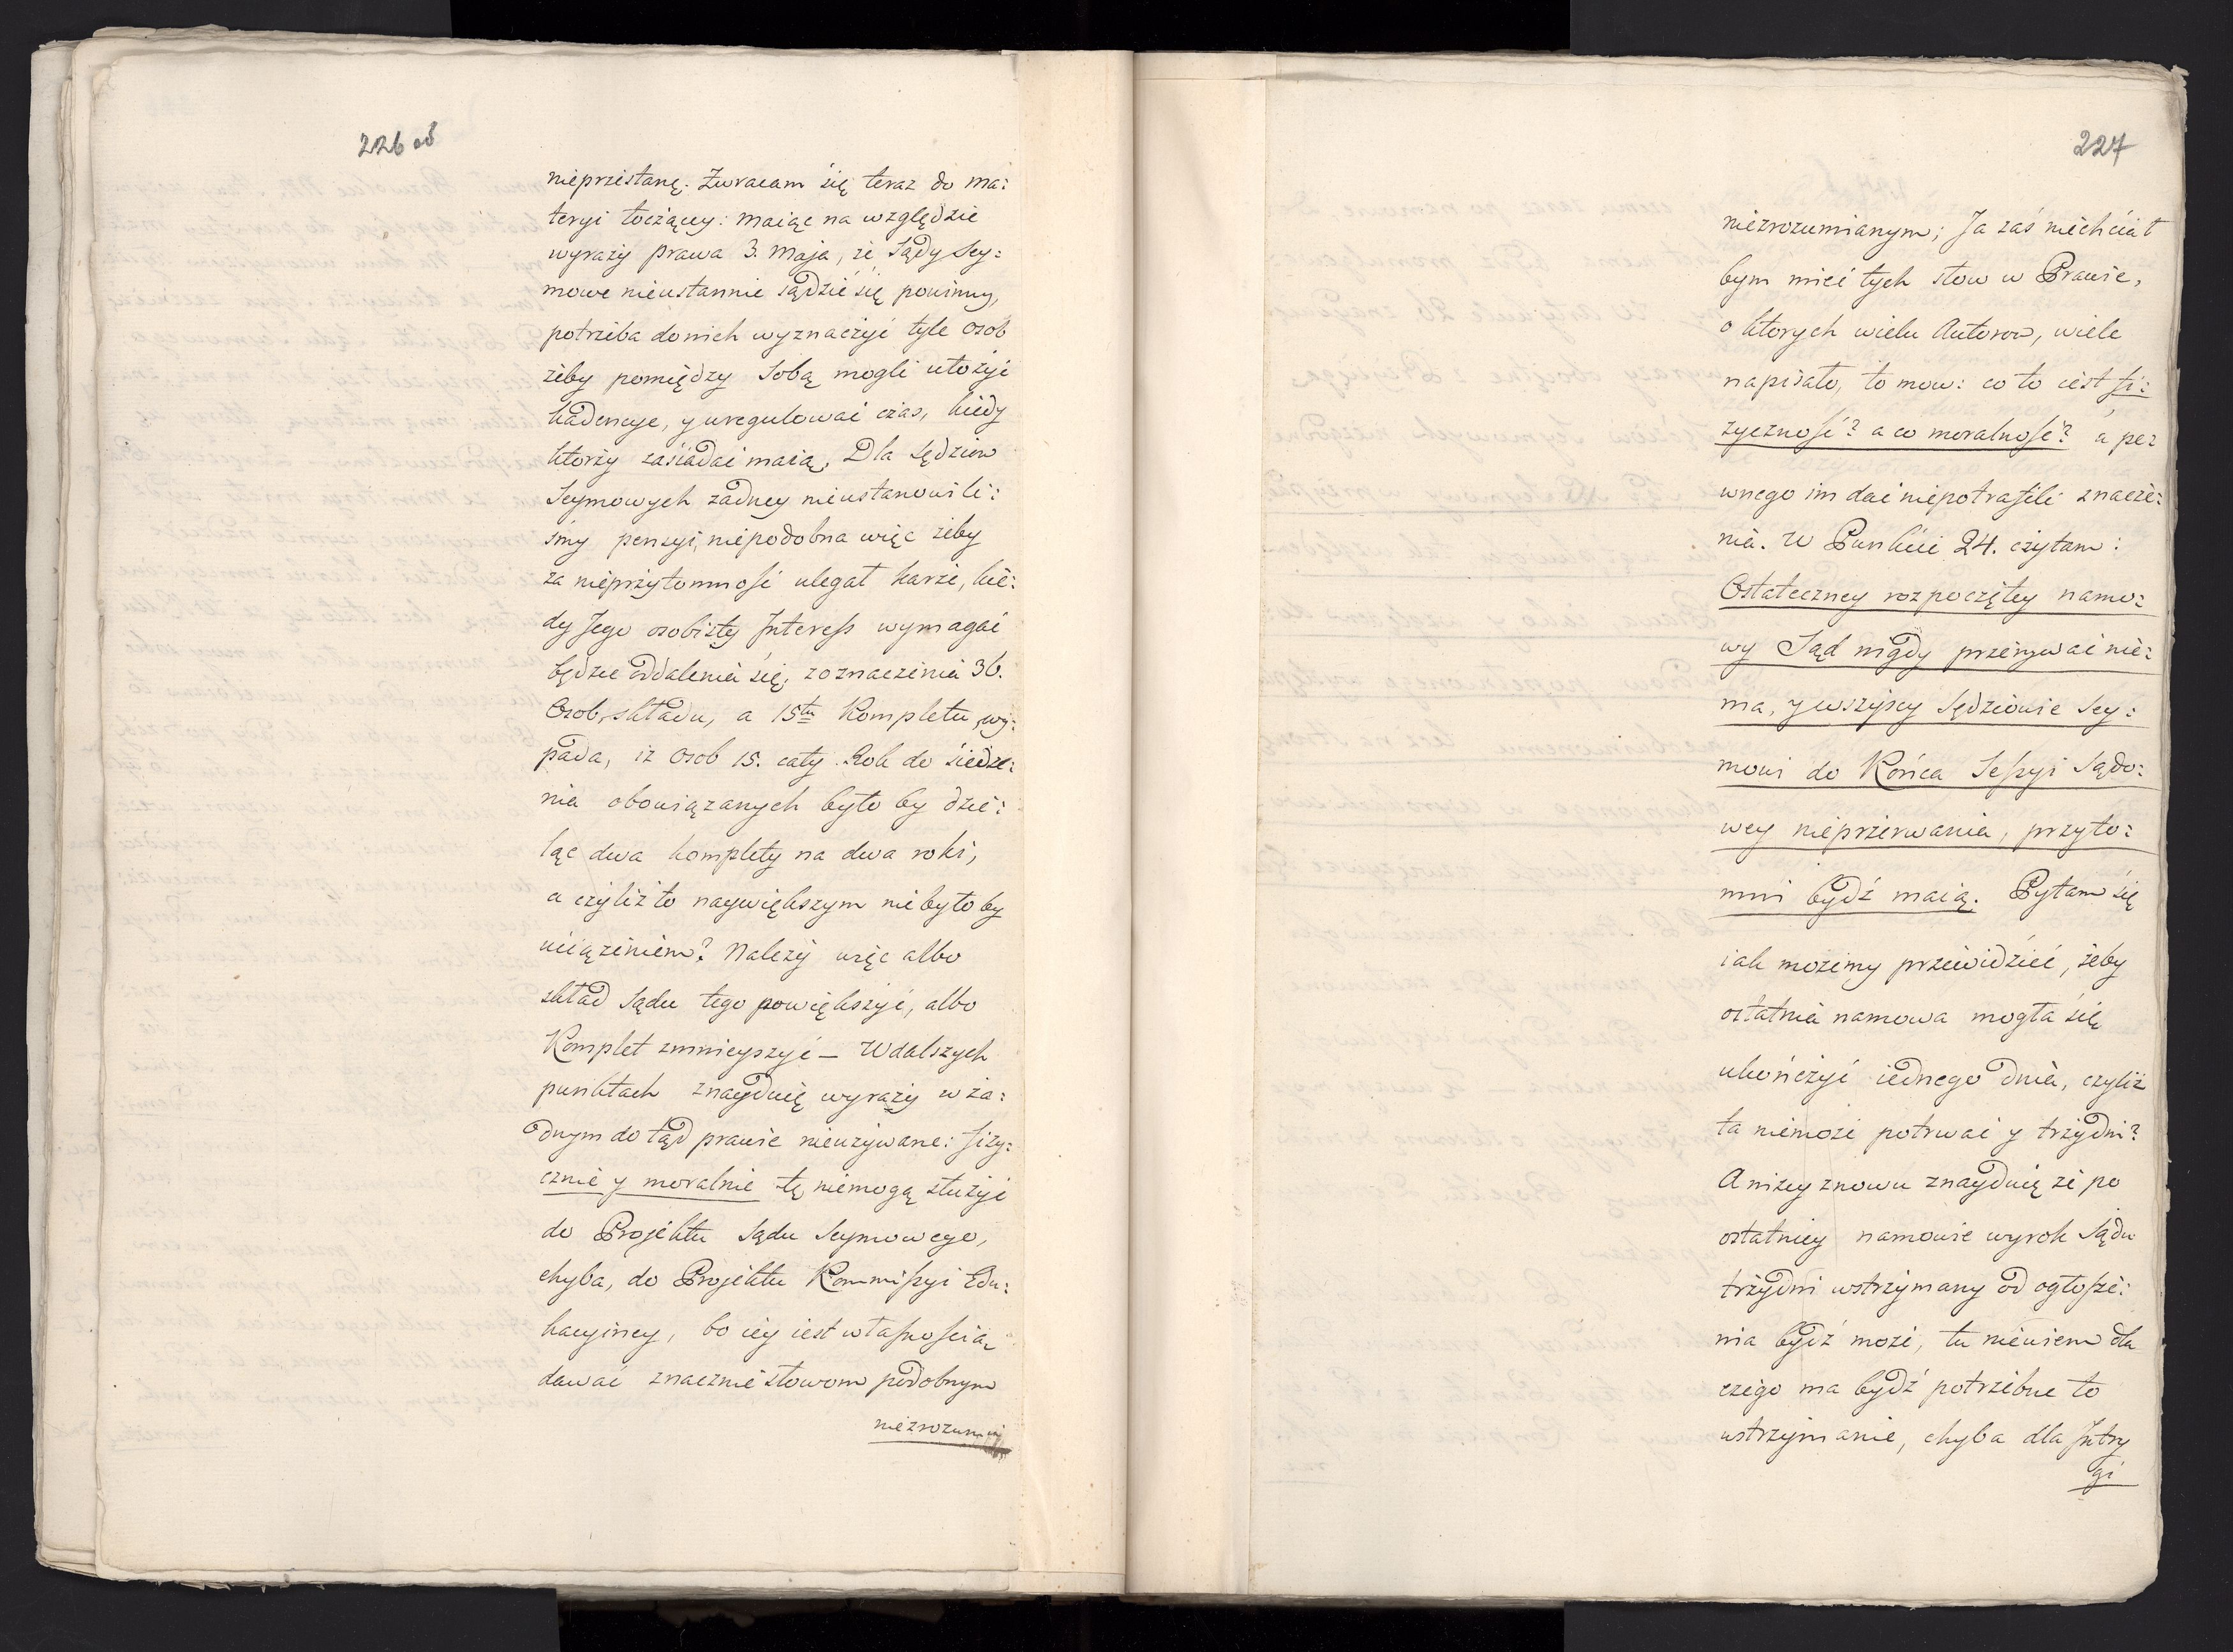 226 od
nieprzestanę. Zwracam się teraz do ma:
teryi toczący: maiąc na względzie
wyrazy prawa 3. Maja, że Sądy Sey:
mowe nieustannie sądzić się powinny,
potrzeba do nich wyznaczyć tyle osob
żeby pomiędzy Sobą mogli ułożyć
kadencye, y uregulować czas, kiedy
ktorzy zasiadać maią. Dla Sędziow
Seymowych żadney nieustanowili:
śmy pensyi, niepodobna więc żeby
za nieprzytomność ulegał karze, kie:
dy Jego osobisty Interess wymagać
będzie oddalenia się, z oznaczenia 36.
Osob, składu, a 15tu Kompletu, wy:
pada, iż Osob 15. cały Rok do siedze:
nia obowiązanych było by dzie:
ląc dwa komplety na dwa roki,
a czyliż to naywiększym nie było by
uciążeniem? Należy więc albo
skład Sądu tego powiększyć, albo
Komplet zmnieyszyć – W dalszych
punktach znayduię wyrazy w ża:
dnym do tąd prawie nieużywane: fizy:
cznie y moralnie tę niemogą służyć
do Projektu Sądu Seymowego,
chyba, do Projektu Kommissyi Edu:
kacyiney, bo iey iest własnością
dawać znacznie słowom podobnym
niezrozumia
227
niezrozumianym; Ja zaś niechciał
bym mieć tych słow w Prawie,
o ktorych wielu Autorow, wiele
napisało, to mow: co to iest fi:
zyczność? a co moralność? a pe:
wnego im dać niepotrafili znacze:
nia. W Punkcie 24. czytam:
Ostateczney rozpoczętey namo:
wy Sąd nigdy przerywać nie:
ma, y wszyscy Sędziowie Sey:
mowi do Końca Sessyi Sądo:
wey nieprzerwania, przyto:
mni bydź maią. Pytam się
iak możemy przewidzieć, żeby
ostatnia namowa mogła się
ukończyć iednego dnia, czyliż
ta niemoże potrwać y trzy dni?
A niżey znowu znayduię że po
ostatniey namowie wyrok Sądu
trzy dni wstrzymany od ogłosze:
nia bydź może, tu niewiem dla
czego ma bydź potrzebne to
wstrzymanie, chyba dla Intry
gi